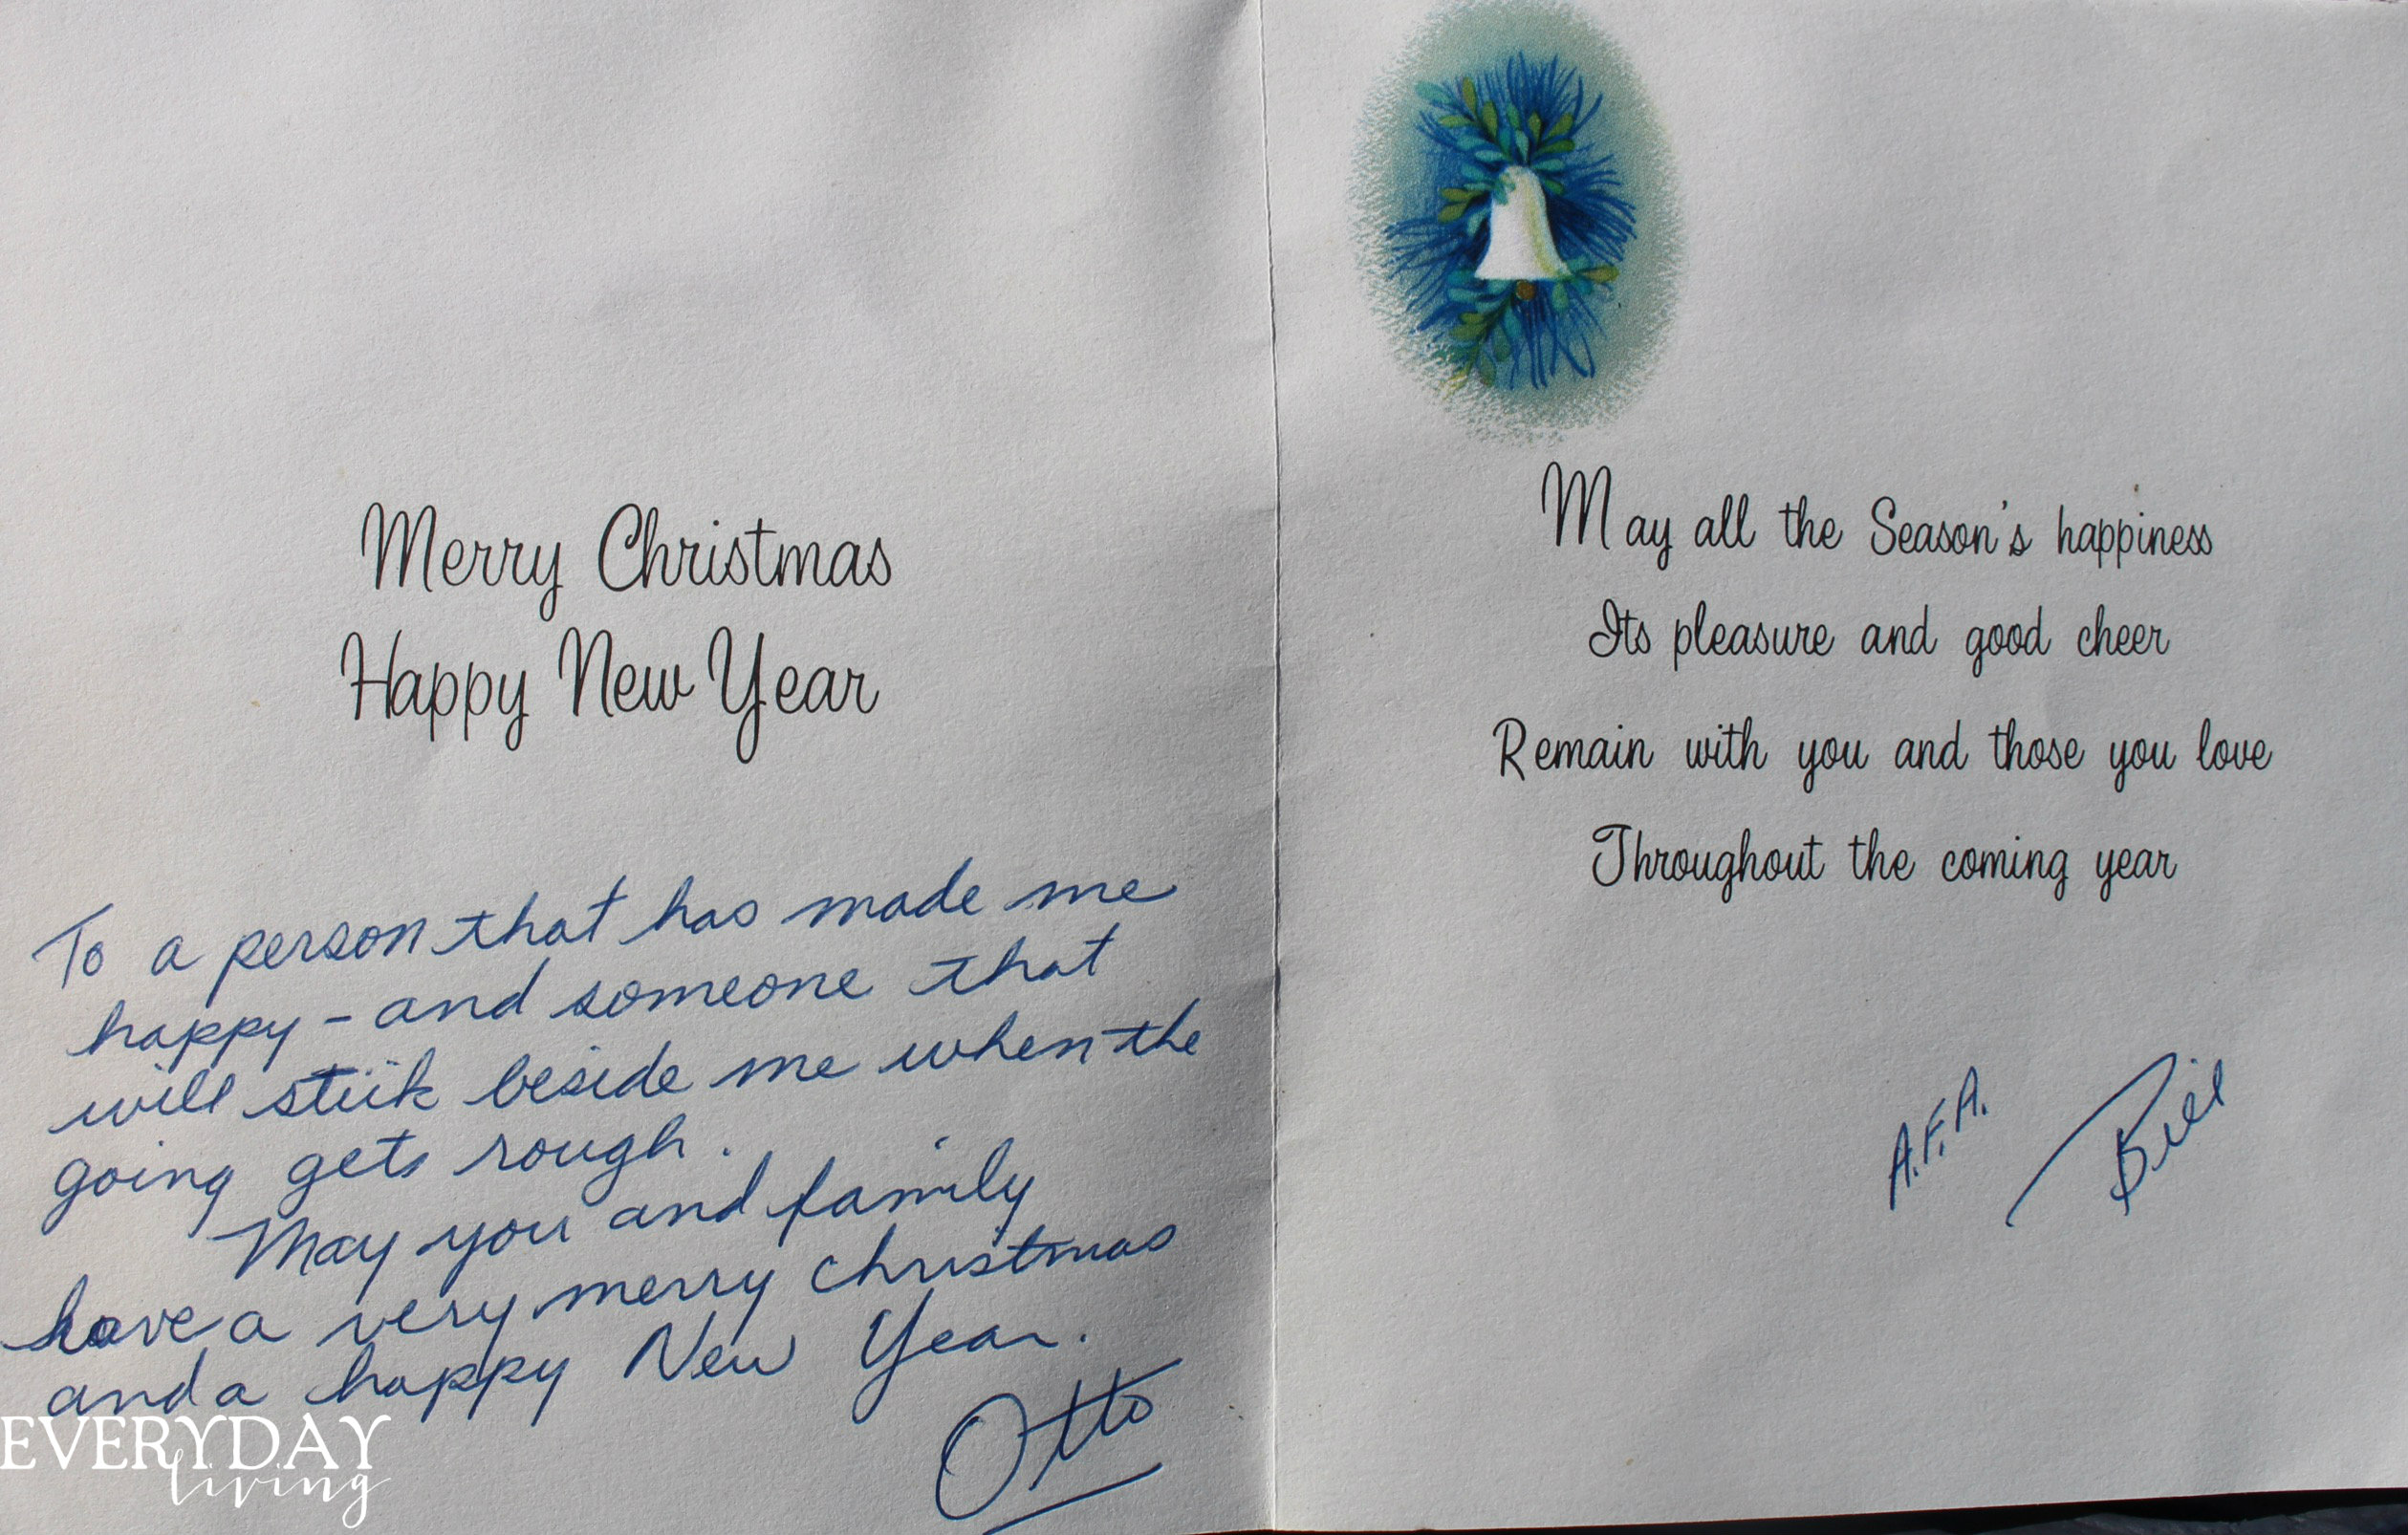 Merry Christmas
Happy New Year
To a person that has made me
happy - and someone that
will stick beside me when the
going gets rough.
May you and family
have a very merry christmas
and a happy New Year.
Otto
EVERYDAY
living
May all the Season's happiness
Its pleasure and good cheer
Remain with you and those you love
Throughout the coming year
A.F.A.
Bill